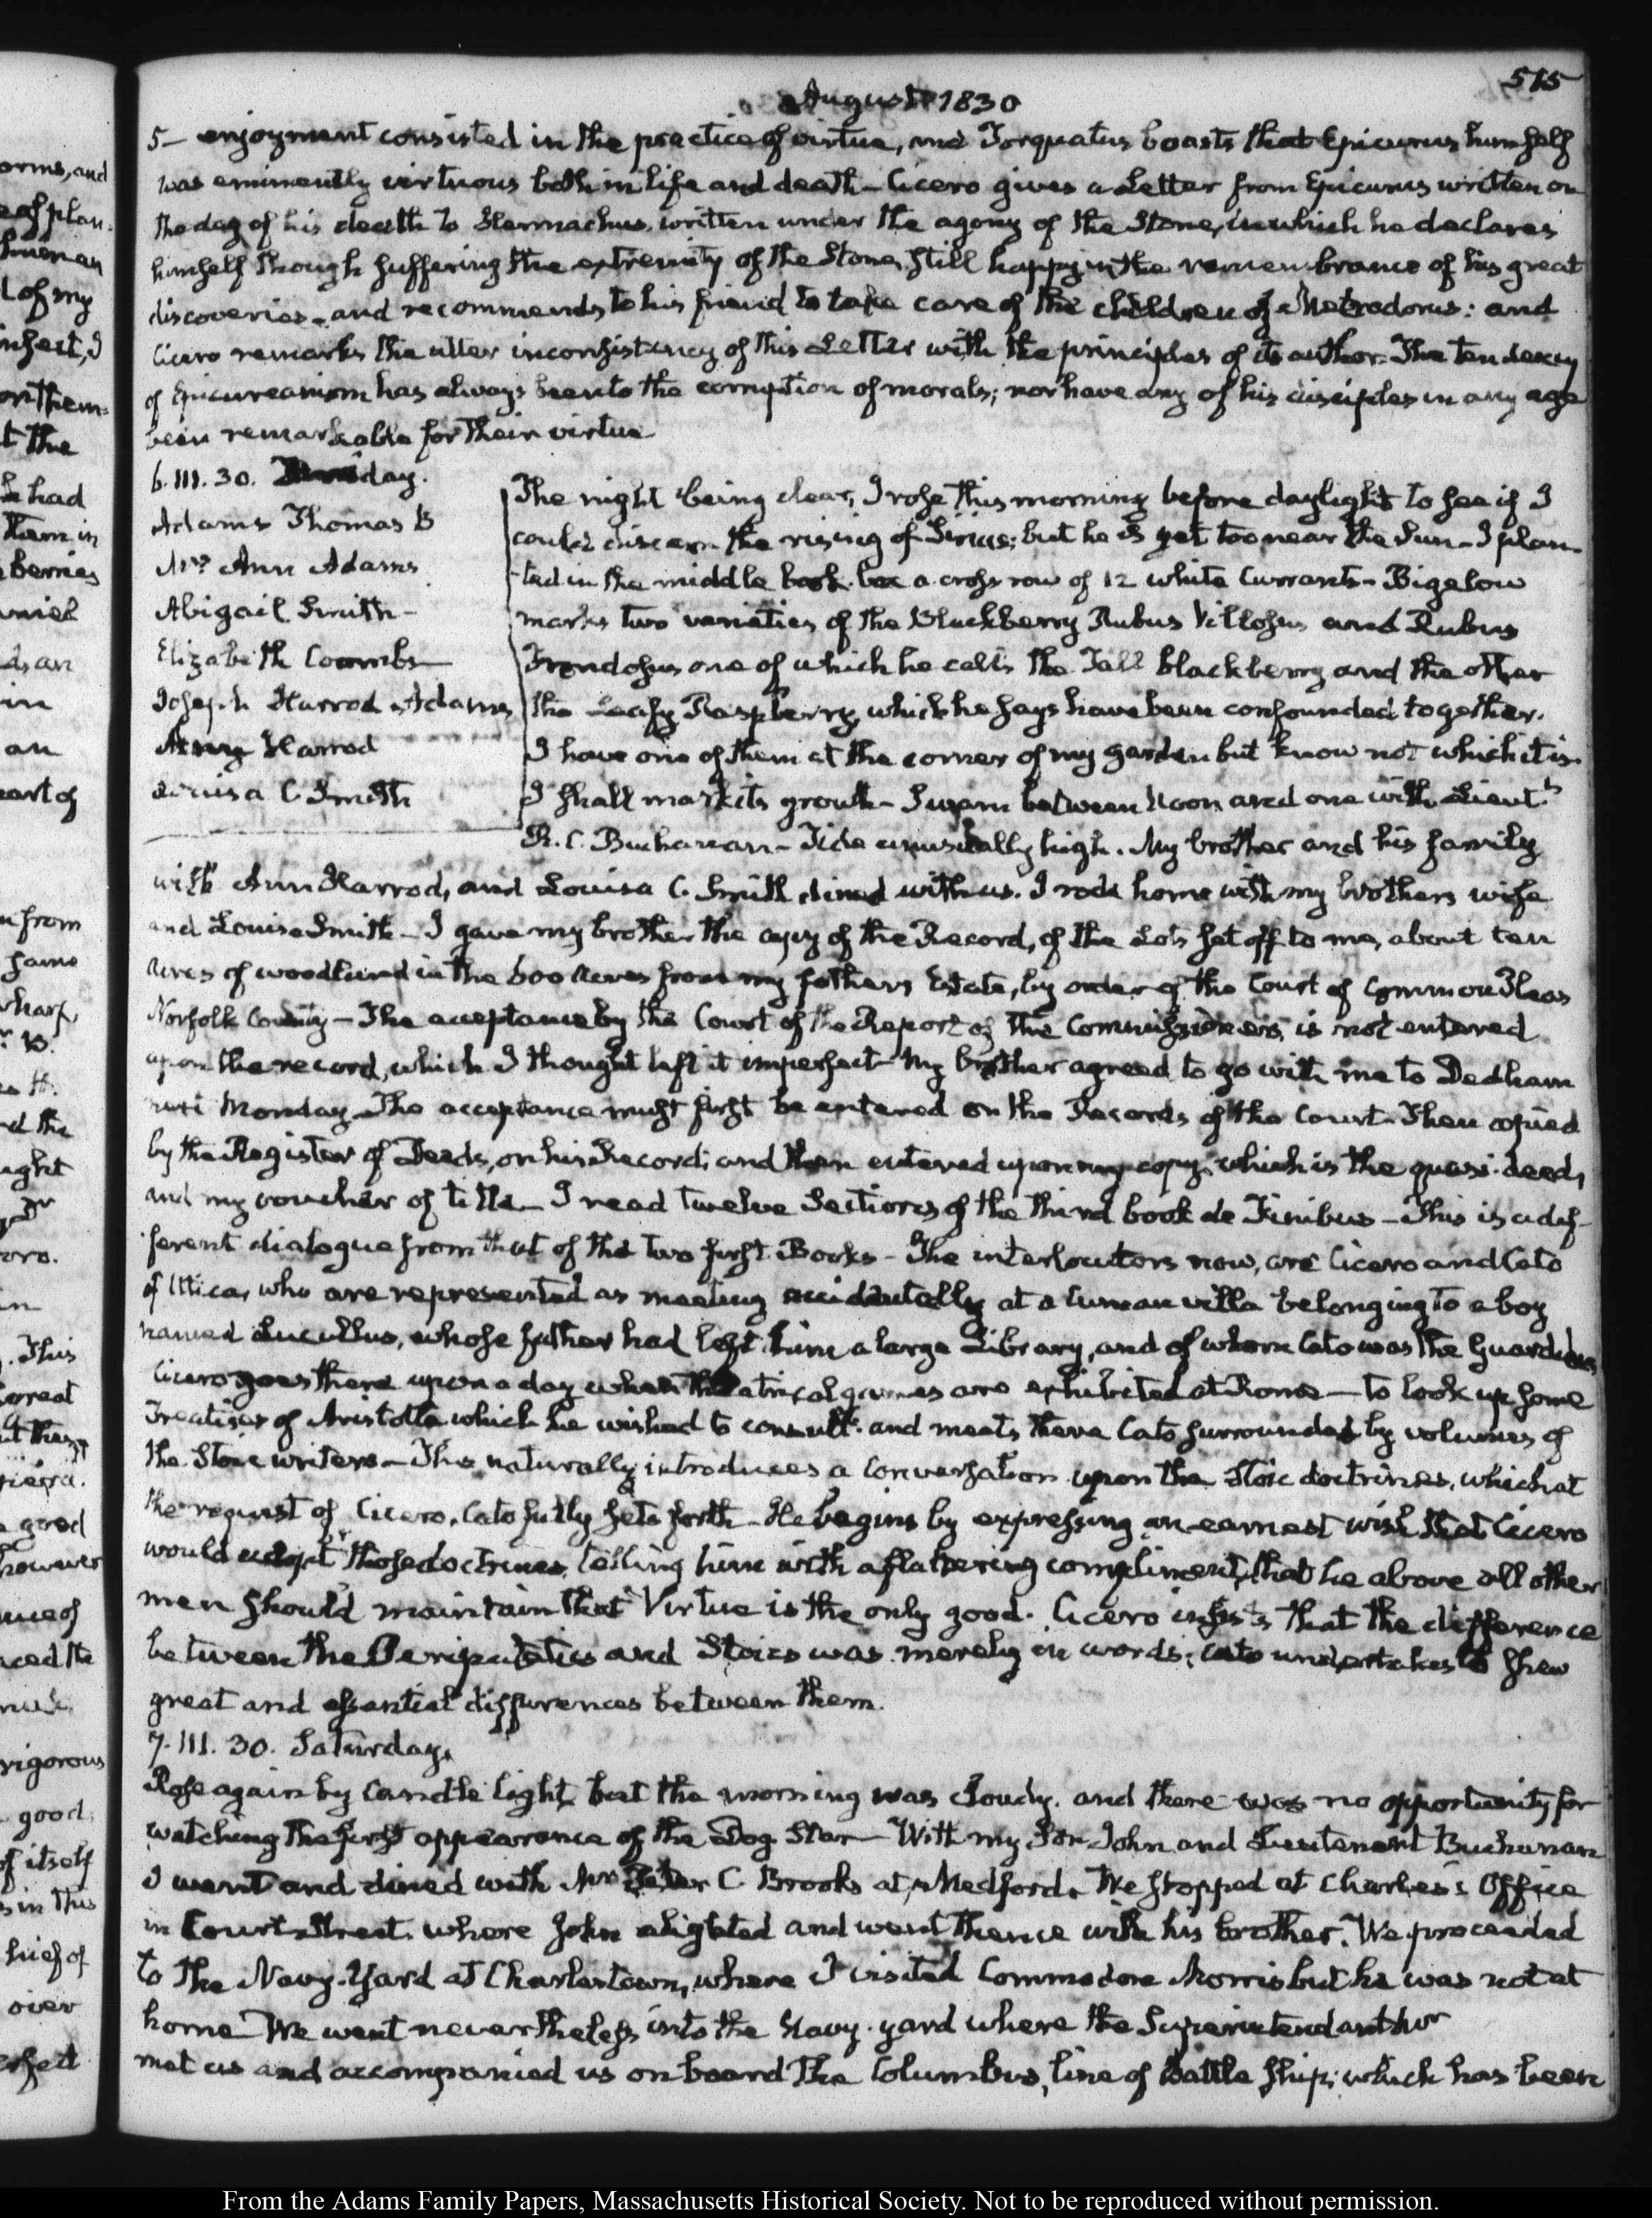 515
August 1830
5— enjoyment consisted in the practice of virtue, and Torquatus boasts that Epicurus himself
was eminently virtuous both in life and death — Cicero gives a Letter from Epicurus written on
the day of his death to Hermachus, written under the agony of the Stone, in which he declares
himself though suffering the extremity of the Stone, still happy in the remembrance of his great
discoveries — and recommends to his friend to take care of the children of Metrodorus: and
Cicero remarks the utter inconsistency of this Letter with the principles of its author. The tendency
of Epicureanism has always been to the corruption of morals; nor have any of his disciples in any age
been remarkable for their virtue
6. III. 30. day.
Adams Thomas B
Mrs Ann Adams
Abigail Smith —
Elizabeth Coombs —
Joseph Harrod Adams
Harrod
Louisa C Smith
The night being clear, I rose this morning before daylight to see if I
could discern the rising of Sirius; but he is yet too near the Sun — I plan-
ted in the middle box a cross row of 12 white Currants — Bigelow
marks two varieties of the Blackberry Rubus Villosus and Rubus
Frondosus one of which he calls the Tall blackberry and the other
the Leafy Raspberry, which he says have been confounded together.
I have one of them at the corner of my garden but know not which it is.
I shall mark its growth — I swam between Noon and one with Lieutt
R. C. Buchanan — Tide unusually high. My brother and his family
with Ann Harrod, and Louisa C. Smith dined with us. I rode home with my brothers wife
and Louisa Smith — I gave my brother the copy of the Record, of the Lots set off to me, about ten
Acres of woodland in the 600 Acres from my fathers Estate, by order of the Court of Common Pleas
Norfolk County — The acceptance by the Court of the Report of the Commissioners, is not entered
upon the record, which I thought left it imperfect — My brother agreed to go with me to Dedham
next Monday — The acceptance must first be entered on the Records of the Court. Then copied
by the Register of Deeds, on his Record; and then entered upon my copy, which is the quasi-deed,
and my voucher of title — I read twelve Sections of the third book de Finibus — This is a dif-
ferent dialogue from that of the two first Books — The interlocutors now, are Cicero and Cato
of Utica, who are represented as meeting accidentally at a Cuman villa belonging to a boy
named Lucullus, whose father had left him a large Library, and of whom Cato was the Guardian
Cicero goes there upon a day when theatrical games are exhibited at Rome — to look up some
Treatises of Aristotle which he wished to consult. and meets there Cato surrounded by volumes of
the Stoic writers — This naturally introduces a Conversation upon the Stoic doctrines, which at
the request of Cicero, Cato fully sets forth — He begins by expressing an earnest wish that Cicero
would adopt those doctrines, telling him with a flattering compliment, that he above all other
men should maintain that Virtue is the only good. Cicero insists that the difference
between the Peripatetics and Stoics was merely in words; Cato undertakes to shew
great and essential differences between them.
7. III. 30. Saturday.
Rose again by Candle light, but the morning was cloudy, and there was no opportunity for
watching the first appearance of the Dog Star — With my Son John and Lieutenant Buchanan
I went and dined with Mr Peter C. Brooks at Medford. We stopped at Charles's Office
in Court Street, where John alighted and went thence with his brother. We proceeded
to the Navy-Yard at Charlestown, where I visited Commodore Morris but he was not at
home — We went nevertheless into the Navy-yard where the Superintendant
met us and accompanied us on board the Columbus, line of Battle ship; which has been
From the Adams Family Papers, Massachusetts Historical Society. Not to be reproduced without permission.